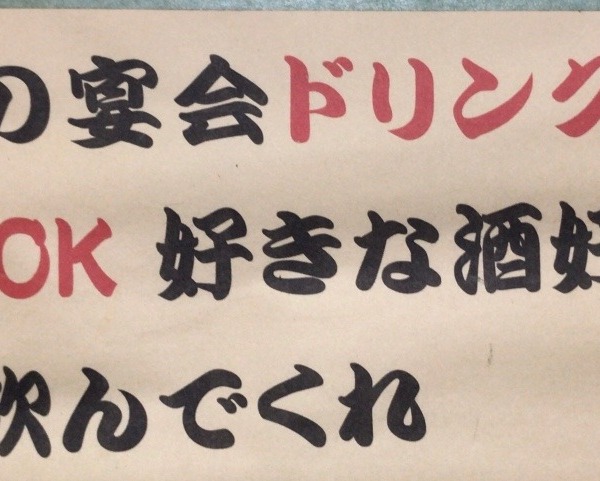 の宴会ドリンク
OK 好きな酒好
飲んでくれ